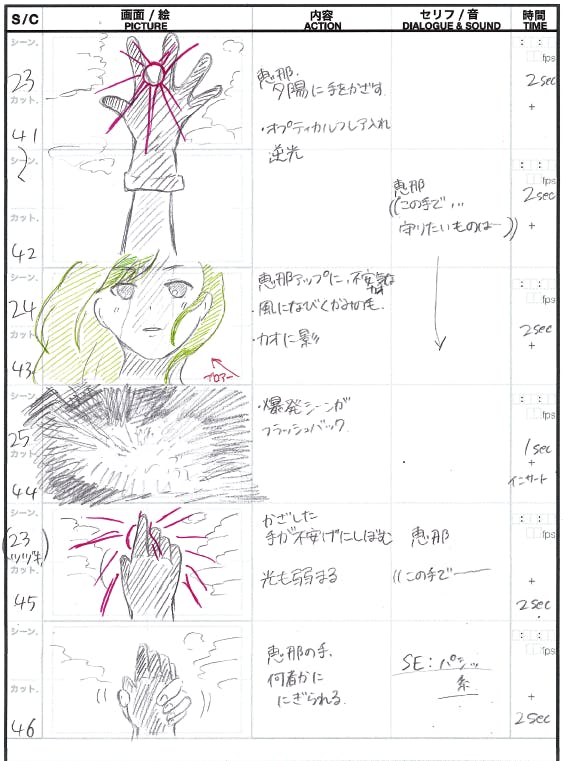 S/C
画面 / 絵
PICTURE
内容
ACTION
セリフ / 音
DIALOGUE & SOUND
時間
TIME
シーン.
23
カット.
41
恵那.
夕陽に手をかざす.
・オプティカルフレア入れ
逆光
: :
fps
2sec
+
シーン.
カット.
42
恵那
((この手で...
守りたいものは—))
: :
fps
2sec
+
シーン.
24
カット.
43
ブロアー
恵那アップに、不安気な
・風になびくかみの毛.
・カオに影
: :
fps
2sec
+
シーン.
25
カット.
44
・爆発シーンが
フラッシュバック.
: :
fps
1sec
+
インサート
シーン.
(23
ツヅキ)
カット.
45
かざした
手が不安げにしぼむ
光も弱まる
恵那
((この手で——
: :
fps
+
2sec
シーン.
カット.
46
恵那の手、
何者かに
にぎられる.
SE:パシッ
系
: :
fps
+
2sec